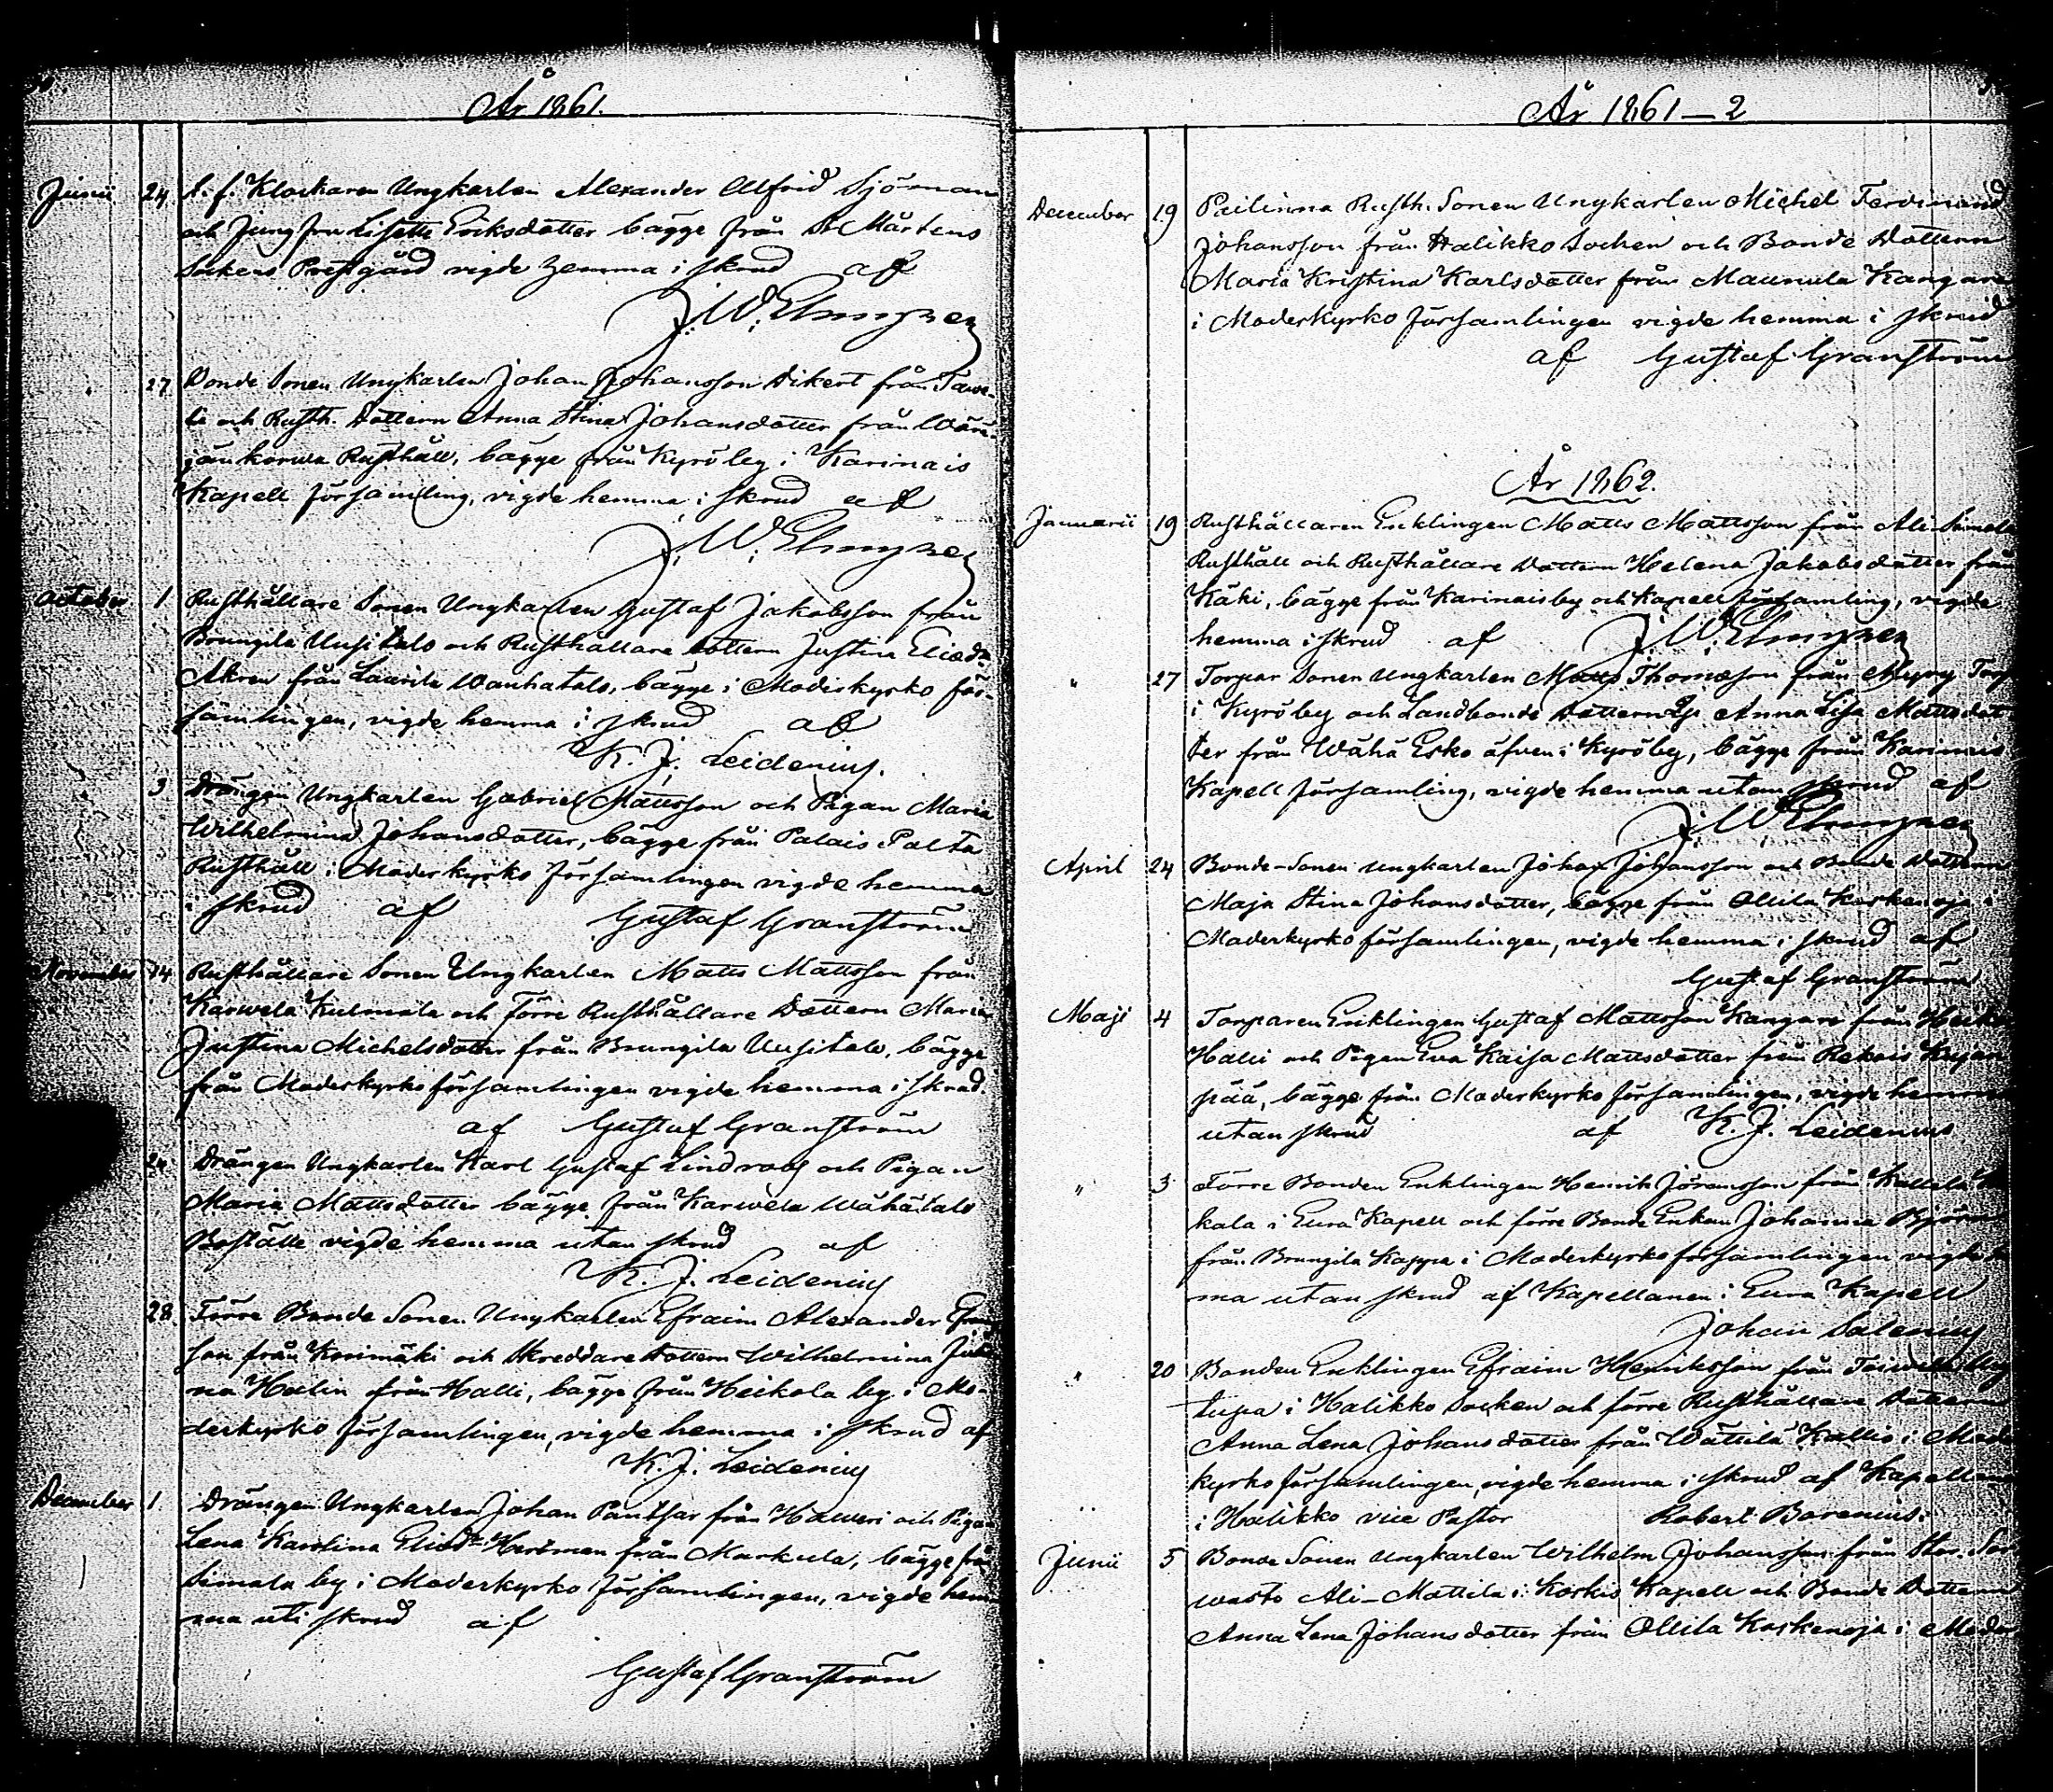 År 1861.
Junii 24. Klockaren Ungkarlen Alexander Alfrid Sjöman
och Jungfru Lisette Eriksdotter bägge från St Mårtens
Sockens Prestgård vigde hemma i skrud af
J. W. Elmgren
27 Bonde Sonen Ungkarlen Johan Johansson Dikert från
och Rusth. Dottern Anna Stina Johansdotter från Wära-
jänkorwa Rusthåll, bägge från Kyrö by i Karinais
Kapell församling, vigde hemma i skrud af
J. W. Elmgren
October 1 Rusthållare Sonen Ungkarlen Gustaf Jakobsson från
Brungila Uusitalo och Rusthållare dottern Justina Eliædr
Akren från Laurila Wanhatalo, bägge i Moderkyrko för-
samlingen, vigde hemma i skrud af
K. J. Leidenius.
3 Drängen Ungkarlen Gabriel Mattsson och Pigan Maria
Wilhelmina Johansdotter, bägge från Palais Palta
Rusthåll i Moderkyrko församlingen vigde hemma
i skrud af Gustaf Granström
November 14 Rusthållare Sonen Ungkarlen Matts Mattsson från
Karwela Kulmala och förre Rusthållare Dottern Maria
Justina Michelsdotter från Brungila Uusitalo, bägge
från Moderkyrko församlingen vigde hemma i skrud.
af Gustaf Granström
24 Drängen Ungkarlen Karl Gustaf Lindroos och Pigan
Maria Mattsdotter bägge från Karwela Wähätalo
Boställe vigde hemma utan skrud af
K. J. Leidenius
28. Förre Bonde Sonen Ungkarlen Efraim Alexander
son från Korimäki och Skreddare dottern Wilhelmina
na Hulin från Halli, bägge från Heikola by i Mo-
derkyrko församlingen, vigde hemma i skrud af
K. J. Leidenius
December 1. Drängen Ungkarlen Johan Panthsar från Haweri och Pigan
Lena Karolina Eliædr Herôman från Markula, bägge från
Simala by i Moderkyrko församlingen, vigde hem-
ma uti skrud af
Gustaf Granström
År 1861–2
December 19 Pailinna Rusth. Sonen Ungkarlen Michel Ferdinand
Johansson från Halikko Socken och Bonde Dottern
Maria Kristina Karlsdotter från Maunula Kangare
i Moderkyrko församlingen vigde hemma i skrud
af Gustaf Granström
År 1862.
Januarii 19 Rusthållaren Enklingen Matts Mattsson från Ali Simola
Rusthåll och Rusthållare Dottern Helena Jakobsdotter från
Käki, bägge från Karinais by och Kapell församling, vigde
hemma i skrud af J. W. Elmgren
" 27 Torpar Sonen Ungkarlen Matts Thomasson från Myry Torp
i Kyrö by och Landbonde Dottern Anna Lisa Mattsdot-
ter från Wähä Esko äfven i Kyrö by, bägge från Karinais
Kapell församling, vigde hemma utan skrud af
J. W. Elmgren
April 24 Bonde-Sonen ungkarlen Johan Johansson och Bonde Dottern
Maja Stina Johansdotter, bägge från Ollila Koskenoja i
Moderkyrko församlingen, vigde hemma i skrud af
Gustaf Granström
Maji 4 Torparen Enklingen Gustaf Mattsson Kangare från
Halli och Pigan Eva Kaisa Mattsdotter från Rekois Kujan
pää, bägge från Moderkyrko församlingen, vigde hemma
utan skrud af K. J. Leidenius
" 3 Förre Bonden Enklingen Henrik Jöransson från
kala i Eura Kapell och förre Bonde Enkan Johanna
från Brungila Kappa i Moderkyrko församlingen vigde
ma utan skrud af Kapellanen i Eura Kapell
Johan Salenius
" 20 Bonden Enklingen Efraim Henriksson från
tupa i Halikko Socken och förre Rusthållare Dottern
Anna Lena Johansdotter från Wättilä Kallio i Moder
kyrko församlingen, vigde hemma i skrud af Kapellanen
i Halikko vice Pastor Robert Borenius.
Junii 5 Bonde Sonen Ungkarlen Wilhelm Johansson från Stor. Sor
wasto Ali-Mattila i Koskis Kapell och Bonde Dottern
Anna Lena Johansdotter från Ollila Koskenoja i Moder